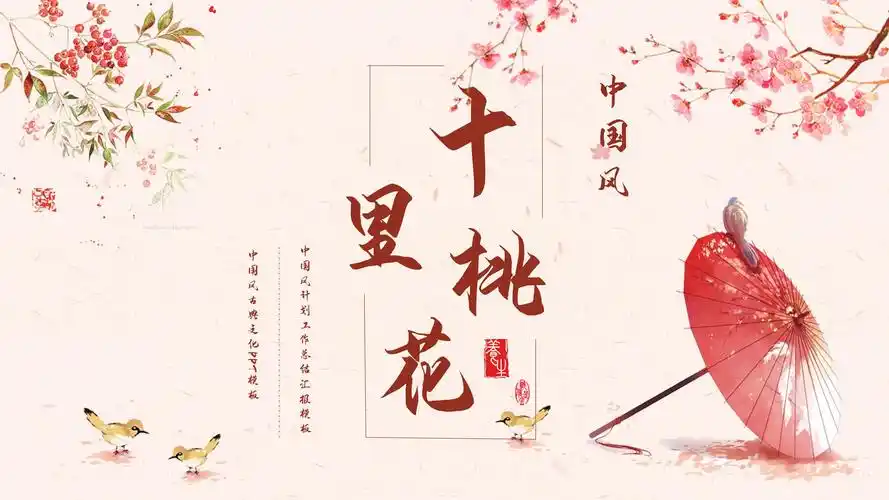 中国风
十里桃花
養生
中国风计划工作总结汇报模板
中国风古典文化PPT模板